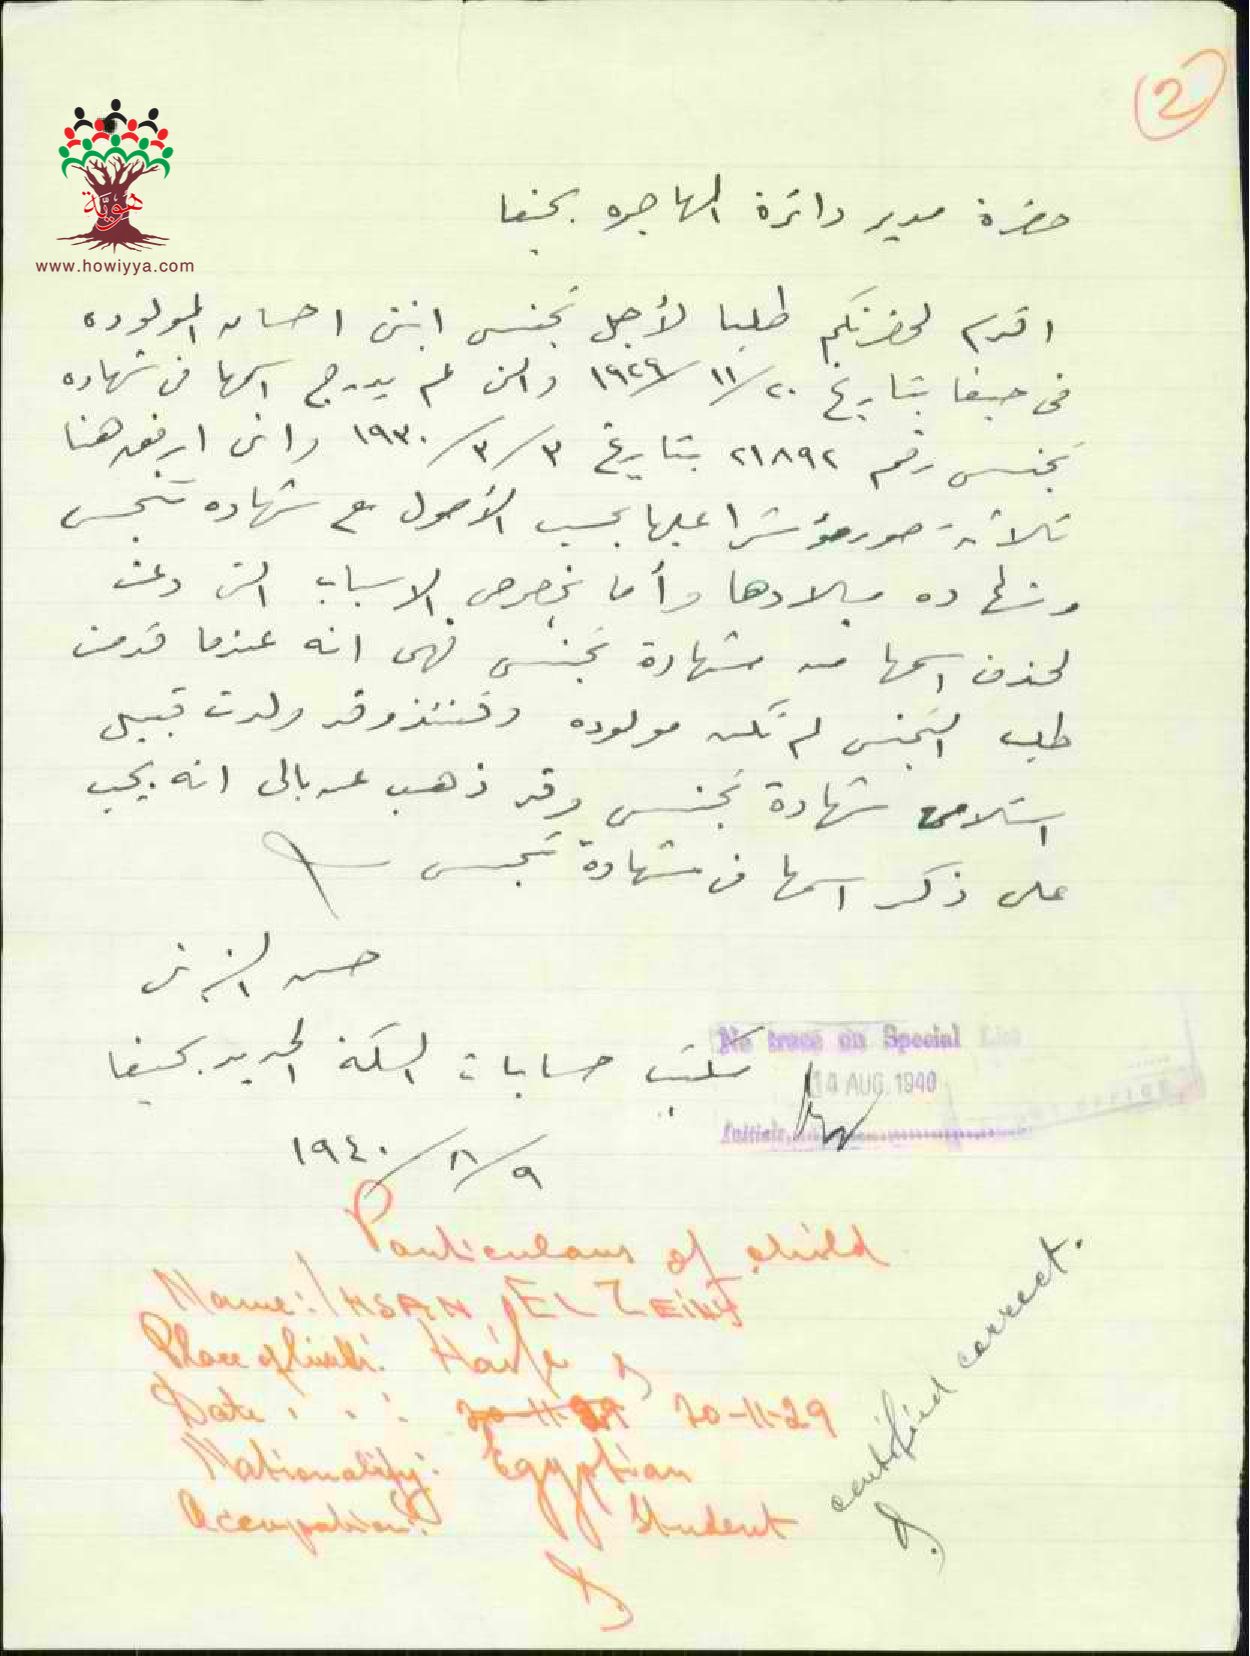 2
هويّة
www.howiyya.com
حضرة مدير دائرة المهاجره بحيفا
اقدم لحضرتكم طلبا لأجل تجنس ابنتى احسان المولوده
فى حيفا بتاريخ ٢٠/١١/١٩٢٩ والتى لم يدرج اسمها فى شهاده
تجنسى رقم ٢١٨٩٢ بتاريخ ٣/٣/١٩٣٠ وانى ارفق هنا
ثلاثة صور مؤشرا عليها بحسب الأصول مع شهاده تجنسى
وشهاده ميلادها وأما بخصوص الاسباب التى دعت
لحذف اسمها من شهادة تجنسى فهى انه عندما قدمت
طلب التجنس لم تكن مولوده وقتئذ وقد ولدت قبيل
استلامى شهادة تجنسى وقد ذهب عن بالى انه يجب
على ذكر اسمها فى شهادة تجنسى
حسن الزينى
مكتب حسابات السكة الحديد بحيفا
٩/٨/١٩٤٠
No trace on Special List
14 AUG. 1940
Initials
Particulars of child
Name: IHSAN EL ZEINY
Place of birth: Haifa
Date : . . : 20-11-29 20-11-29
Nationality: Egyptian
Occupation: Student
certified correct.